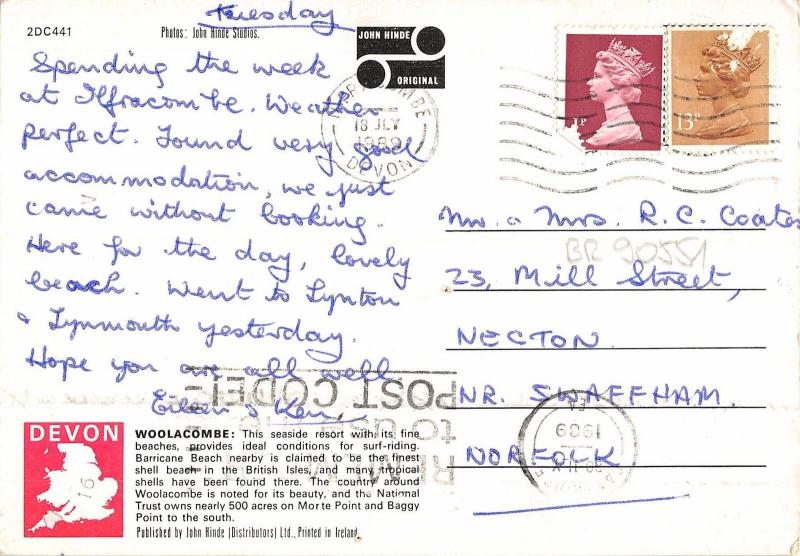 Tuesday
2DC441
Photos: John Hinde Studios.
JOHN HINDE
ORIGINAL
Spending the week
at Ilfracombe. Weather
perfect. Found very good
accommodation, we just
came without booking.
Here for the day, lovely
beach. Went to Lynton
& Lynmouth yesterday.
Hope you are all well
Eileen & Ken,
18 JLY
1989
DEVON
1P
13P
Mr. & Mrs. R. C. Coates
BR 90551
23, Mill Street,
NECTON
NR. SWAFFHAM.
NORFOLK
1989
REMEMBER
to use the
POST CODE
DEVON
16
WOOLACOMBE: This seaside resort with its fine
beaches, provides ideal conditions for surf-riding.
Barricane Beach nearby is claimed to be the finest
shell beach in the British Isles, and many tropical
shells have been found there. The country around
Woolacombe is noted for its beauty, and the National
Trust owns nearly 500 acres on Morte Point and Baggy
Point to the south.
Published by John Hinde (Distributors) Ltd., Printed in Ireland.